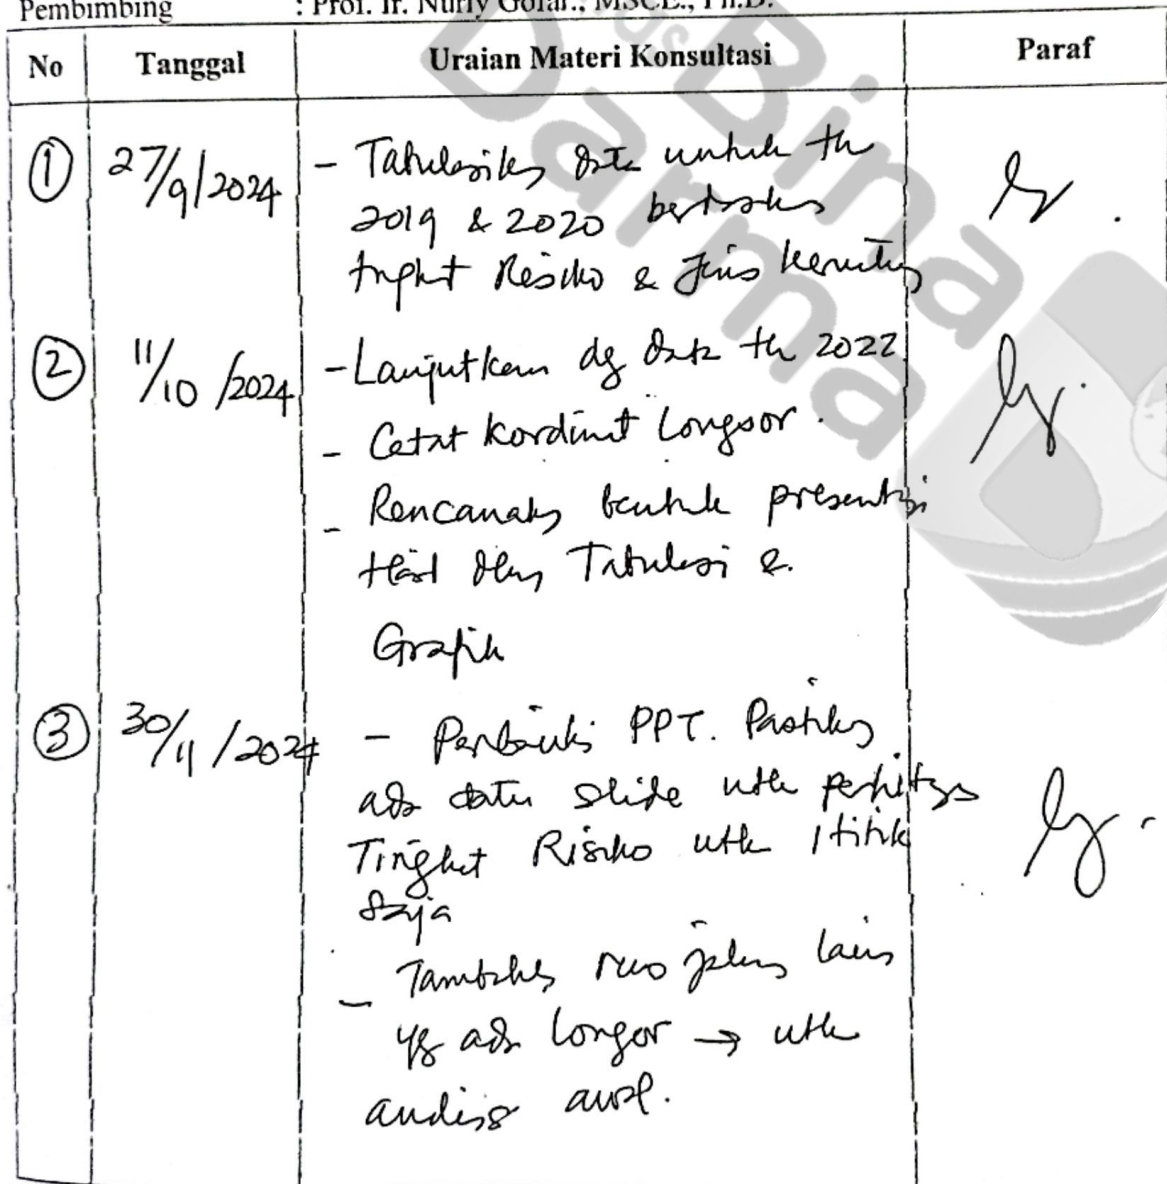 Pembimbing : Prof. Ir. Nurly Gofar., MSCE., Ph.D.
No Tanggal Uraian Materi Konsultasi Paraf
Bina
Darma
1 27/9/2024 - Tabulasikan data untuk th
2019 & 2020 berdasarkan
tingkat Resiko & Jenis keruntuhan
2 11/10/2024 - Lanjutkan dg data th 2022
- Catat kordinat Longsor.
- Rencanakan bentuk presentasi
Hasil dlm Tabulasi &
Grafik
3 30/11/2024 - Perbaiki PPT. Pastikan
ada satu slide utk perhitungan
Tingkat Risiko utk 1 titik
saja
- Tambahkan ruas jalan lain
yg ada longsor → utk
analisis awal.